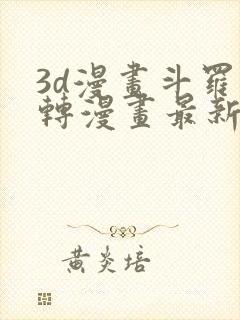 3d漫畫斗羅
轉漫畫最新
黃炎培